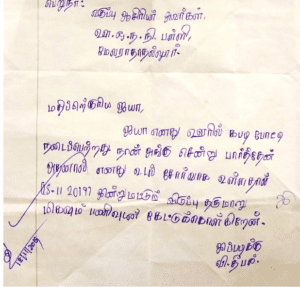 பெறுநர்:
வகுப்பு ஆசிரியர் அவர்கள்,
பள்ளி,
மதிப்பிற்குரிய ஐயா,
ஐயா எனது ஊரில் கபடி போட்டி
நடைபெற்றது நான் அங்கு சென்று பார்த்தேன்
அதனால் எனது உடல் சோர்வாக உள்ளதால்
05-11-2019 இன்று மட்டும் விடுப்பு தருமாறு
மிகவும் பணிவுடன் கேட்டுக்கொள்கிறேன்.
இப்படிக்கு
வி.தீபக்.